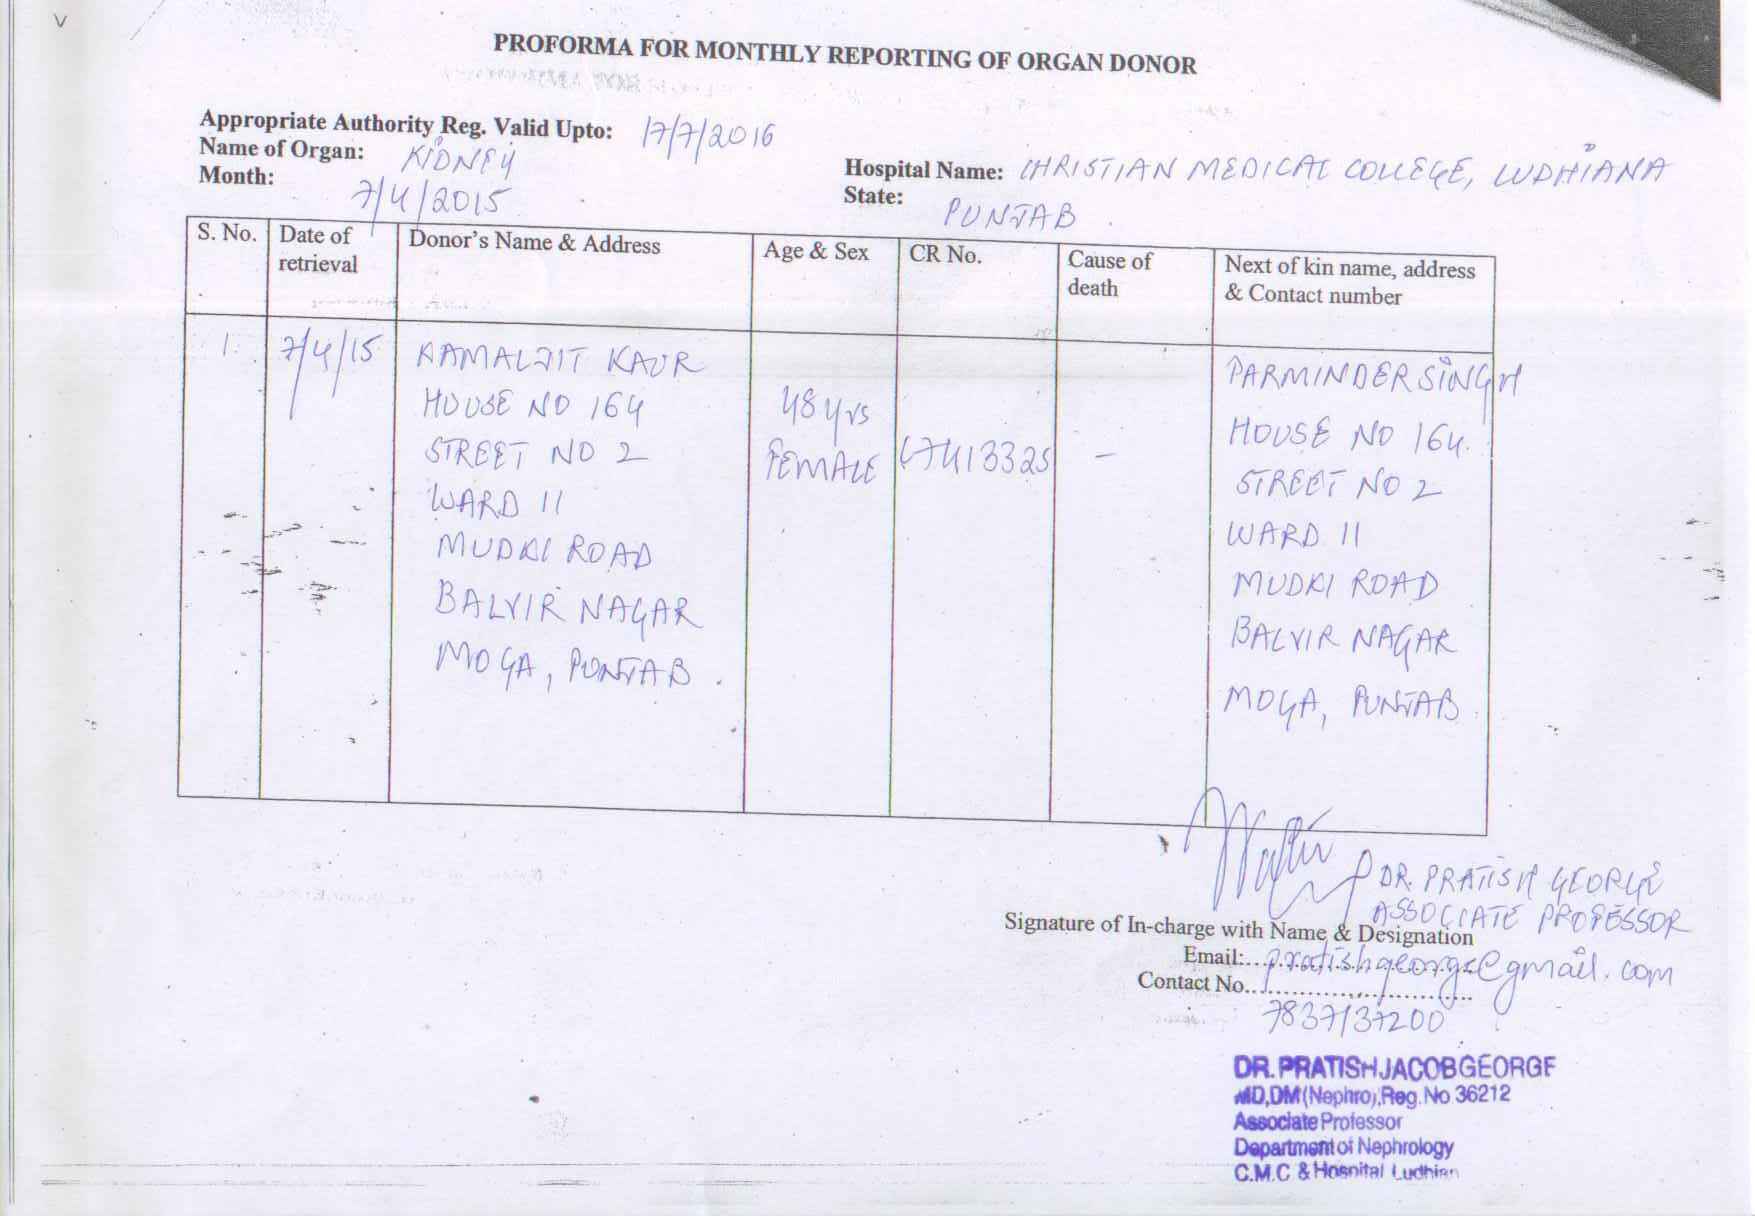 V
PROFORMA FOR MONTHLY REPORTING OF ORGAN DONOR
Appropriate Authority Reg. Valid Upto: 17/7/2016
Name of Organ: KIDNEY
Hospital Name: CHRISTIAN MEDICAL COLLEGE, LUDHIANA
Month: 7/4/2015
State: PUNJAB
S. No.
Date of
retrieval
Donor's Name & Address
Age & Sex
CR No.
Cause of
death
Next of kin name, address
& Contact number
1.
7/4/15
KAMALJIT KAUR
HOUSE NO 164
STREET NO 2
WARD 11
MUDKI ROAD
BALVIR NAGAR
MOGA, PUNJAB.
48 yrs
FEMALE
C7413325
-
PARMINDER SINGH
HOUSE NO 164.
STREET NO 2
WARD 11
MUDKI ROAD
BALVIR NAGAR
MOGA, PUNJAB.
DR. PRATISH GEORGE
ASSOCIATE PROFESSOR
Signature of In-charge with Name & Designation
Email:...pratishgeorge@gmail.com
Contact No...............................
7837137200
DR. PRATISH JACOB GEORGE
MD,DM (Nephro),Reg. No 36212
Associate Professor
Department of Nephrology
C.M.C & Hospital Ludhian